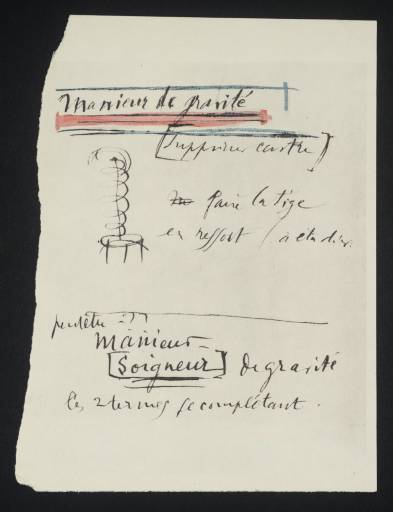 Manieur de gravité
[Supprimer centre]
faire la tige
en ressort (à etudier
peutêtre - ??
Manieur -
[Soigneur] de gravité
les 2 termes se complétant.